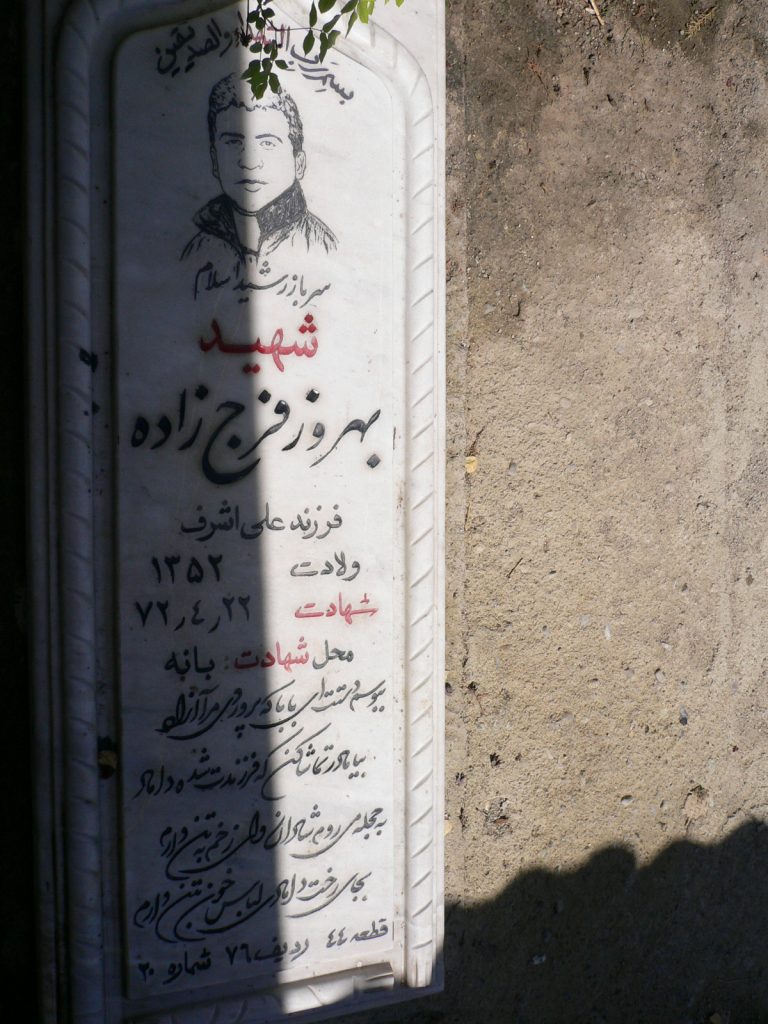 بسم رب الشهداء والصدیقین
سرباز رشید اسلام
شهید
بهروز فرج زاده
فرزند علی اشرف
ولادت ۱۳۵۲
شهادت ۷۲٫۴٫۲۲
محل شهادت: بانه
ببوسم دستت ای بابا که پروردی مرا آزاد
بیا مادر تماشا کن که فرزندت شده داماد
به حجله می روم شادان ولی زخم به تن دارم
بجای رخت دامادی لباس خون به تن دارم
قطعه ۴۴ ردیف ۷۶ شماره ۲۰